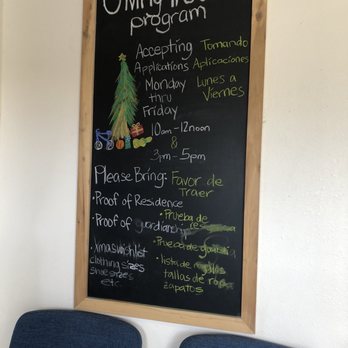 Giving Tree
program
Accepting Tomando
Applications Aplicaciones
Monday Lunes a
thru Viernes
Friday
10am-12noon
&
3pm-5pm
Please Bring: Favor de
Traer
•Proof of Residence
•Proof of guardianship •Prueba de
•Prueba de
•Xmas wishlist •lista de
clothing sizes tallas de ropa
shoe sizes zapatos
etc.